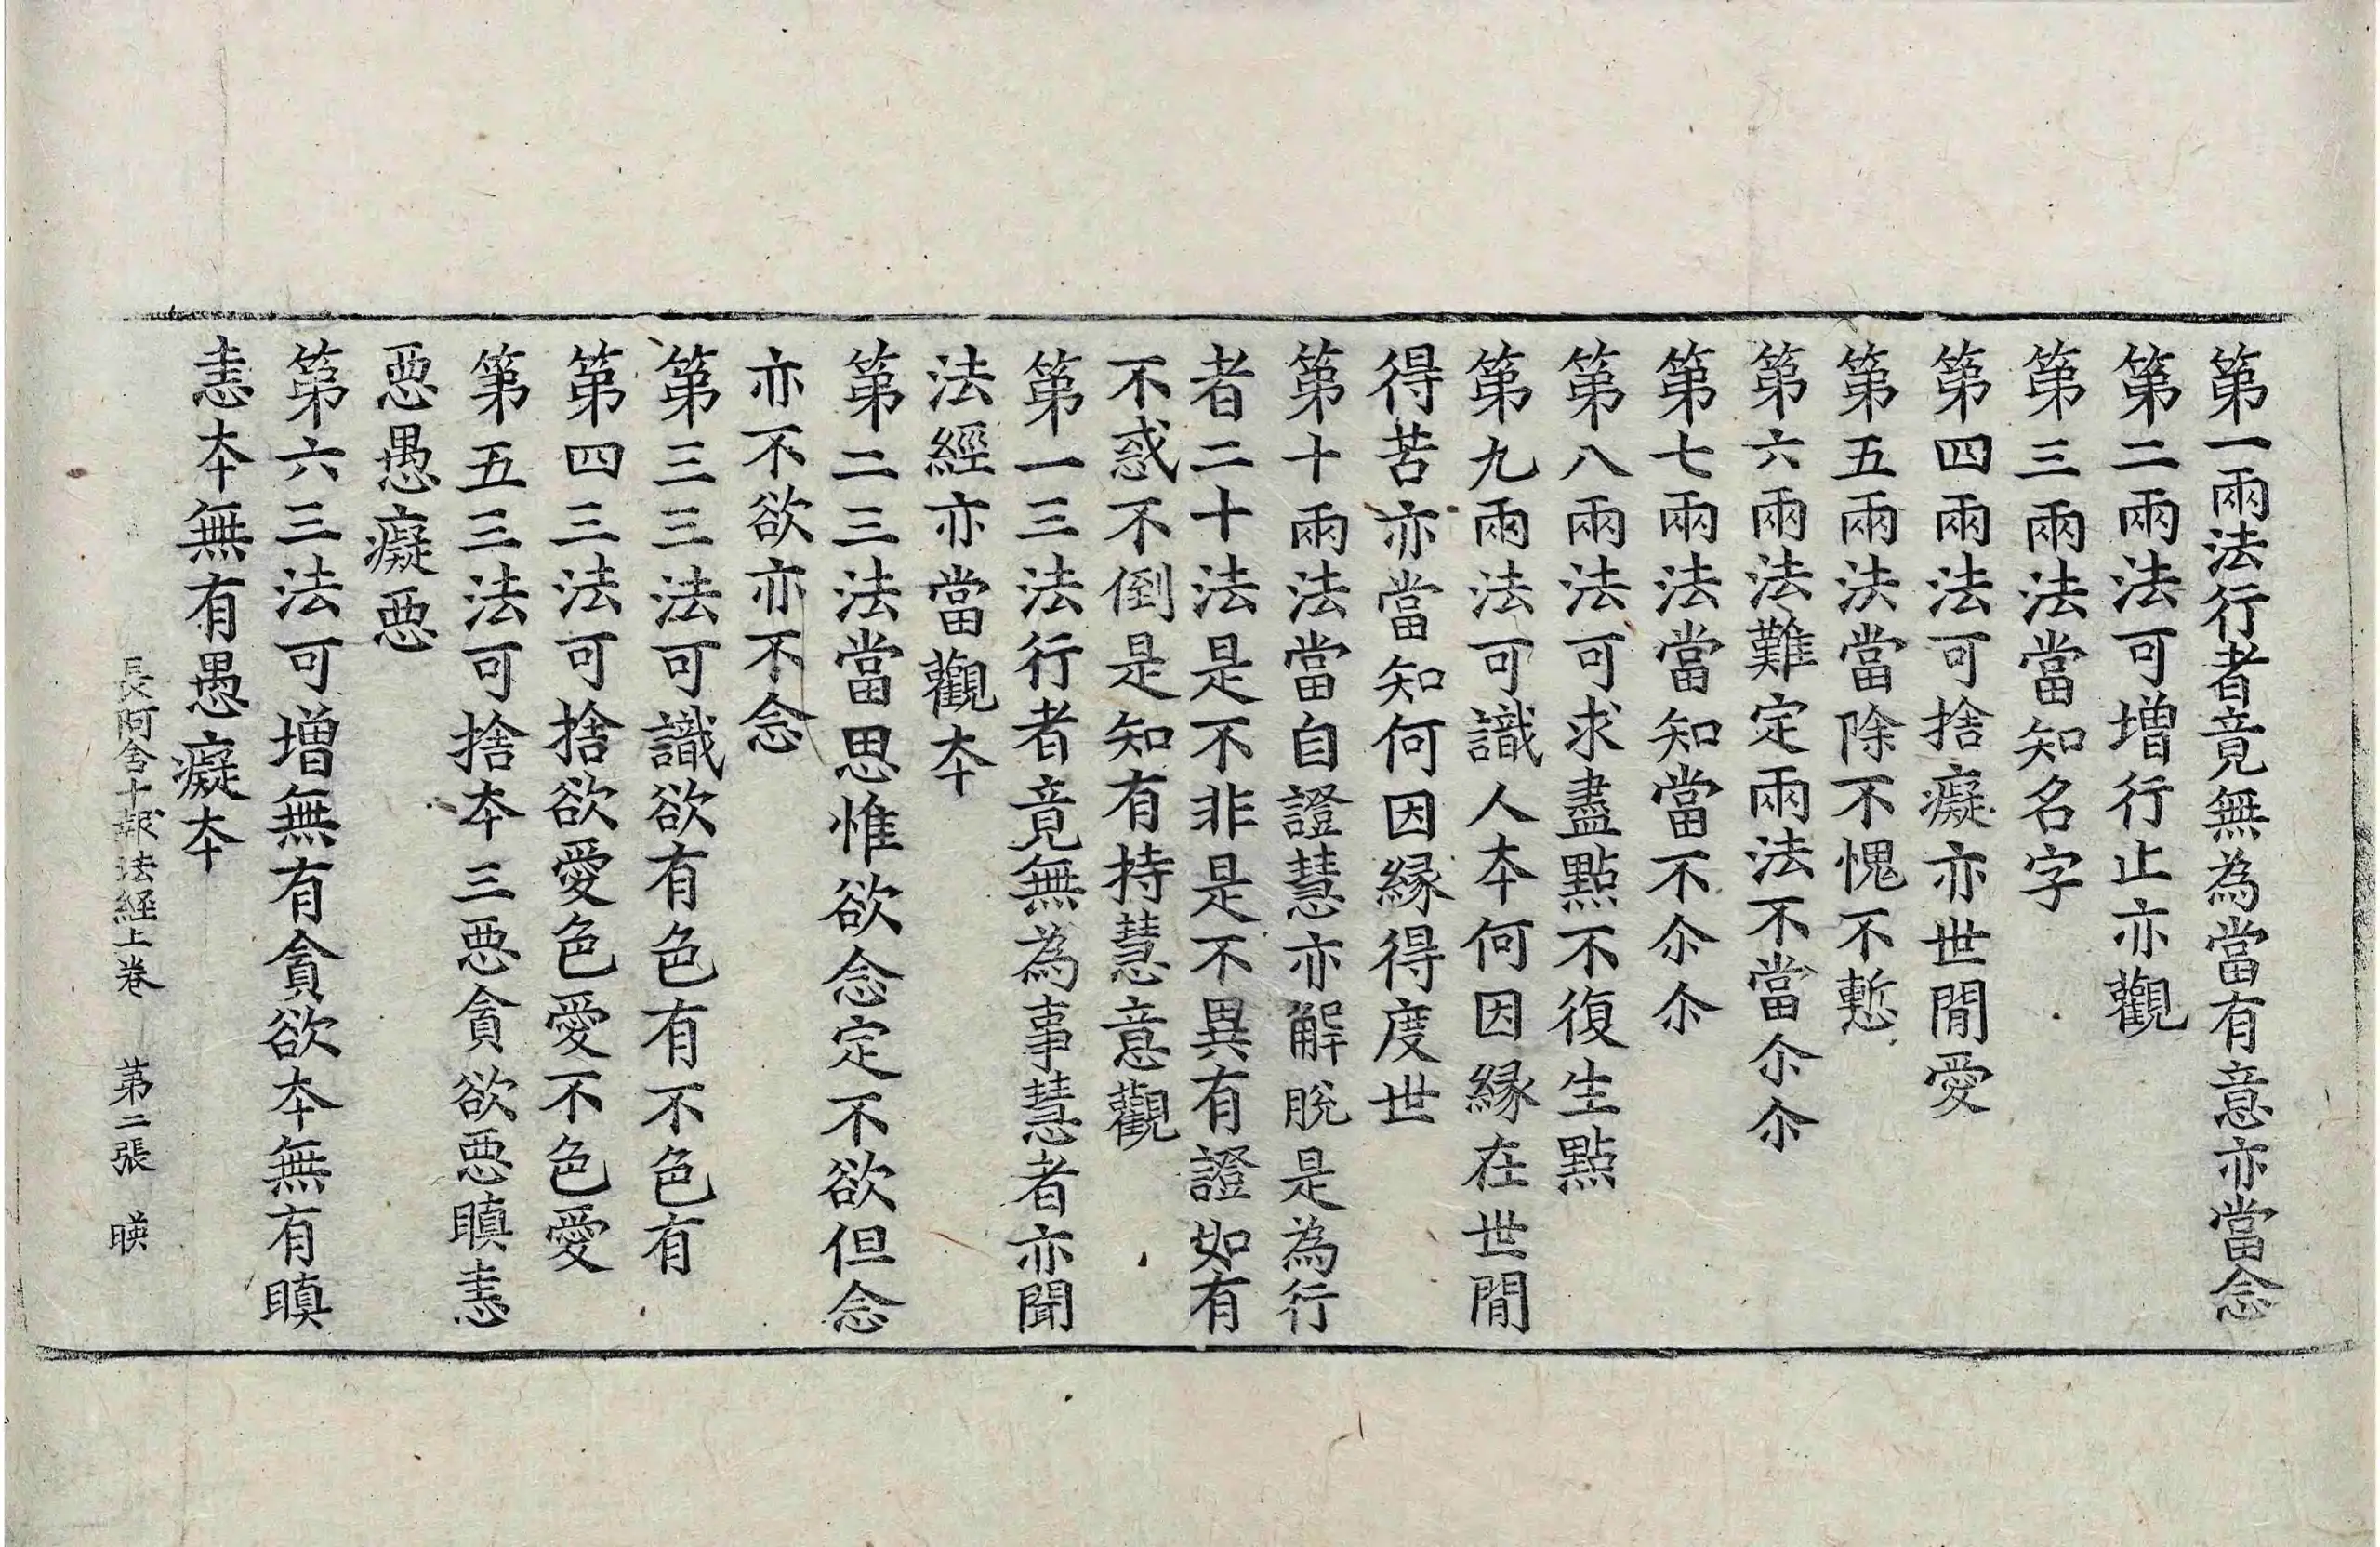 第一兩法行者竟無為當有意亦當念
第二兩法可增行止亦觀
第三兩法當知名字
第四兩法可捨癡亦世閒愛
第五兩法當除不愧不慙
第六兩法難定兩法不當尒尒
第七兩法當知當不尒尒
第八兩法可求盡點不復生點
第九兩法可識人夲何因緣在世閒
得苦亦當知何因緣得度世
第十兩法當自證慧亦解脫是為行
者二十法是不非是不異有證如有
不惑不倒是知有持慧意觀
第一三法行者竟無為事慧者亦聞
法經亦當觀夲
第二三法當思惟欲念定不欲但念
亦不欲亦不念
第三三法可識欲有色有不色有
第四三法可捨欲愛色愛不色愛
第五三法可捨夲三惡貪欲惡瞋恚
惡愚癡惡
第六三法可增無有貪欲夲無有瞋
恚夲無有愚癡夲
長阿含十報法經上卷 第二張 暎